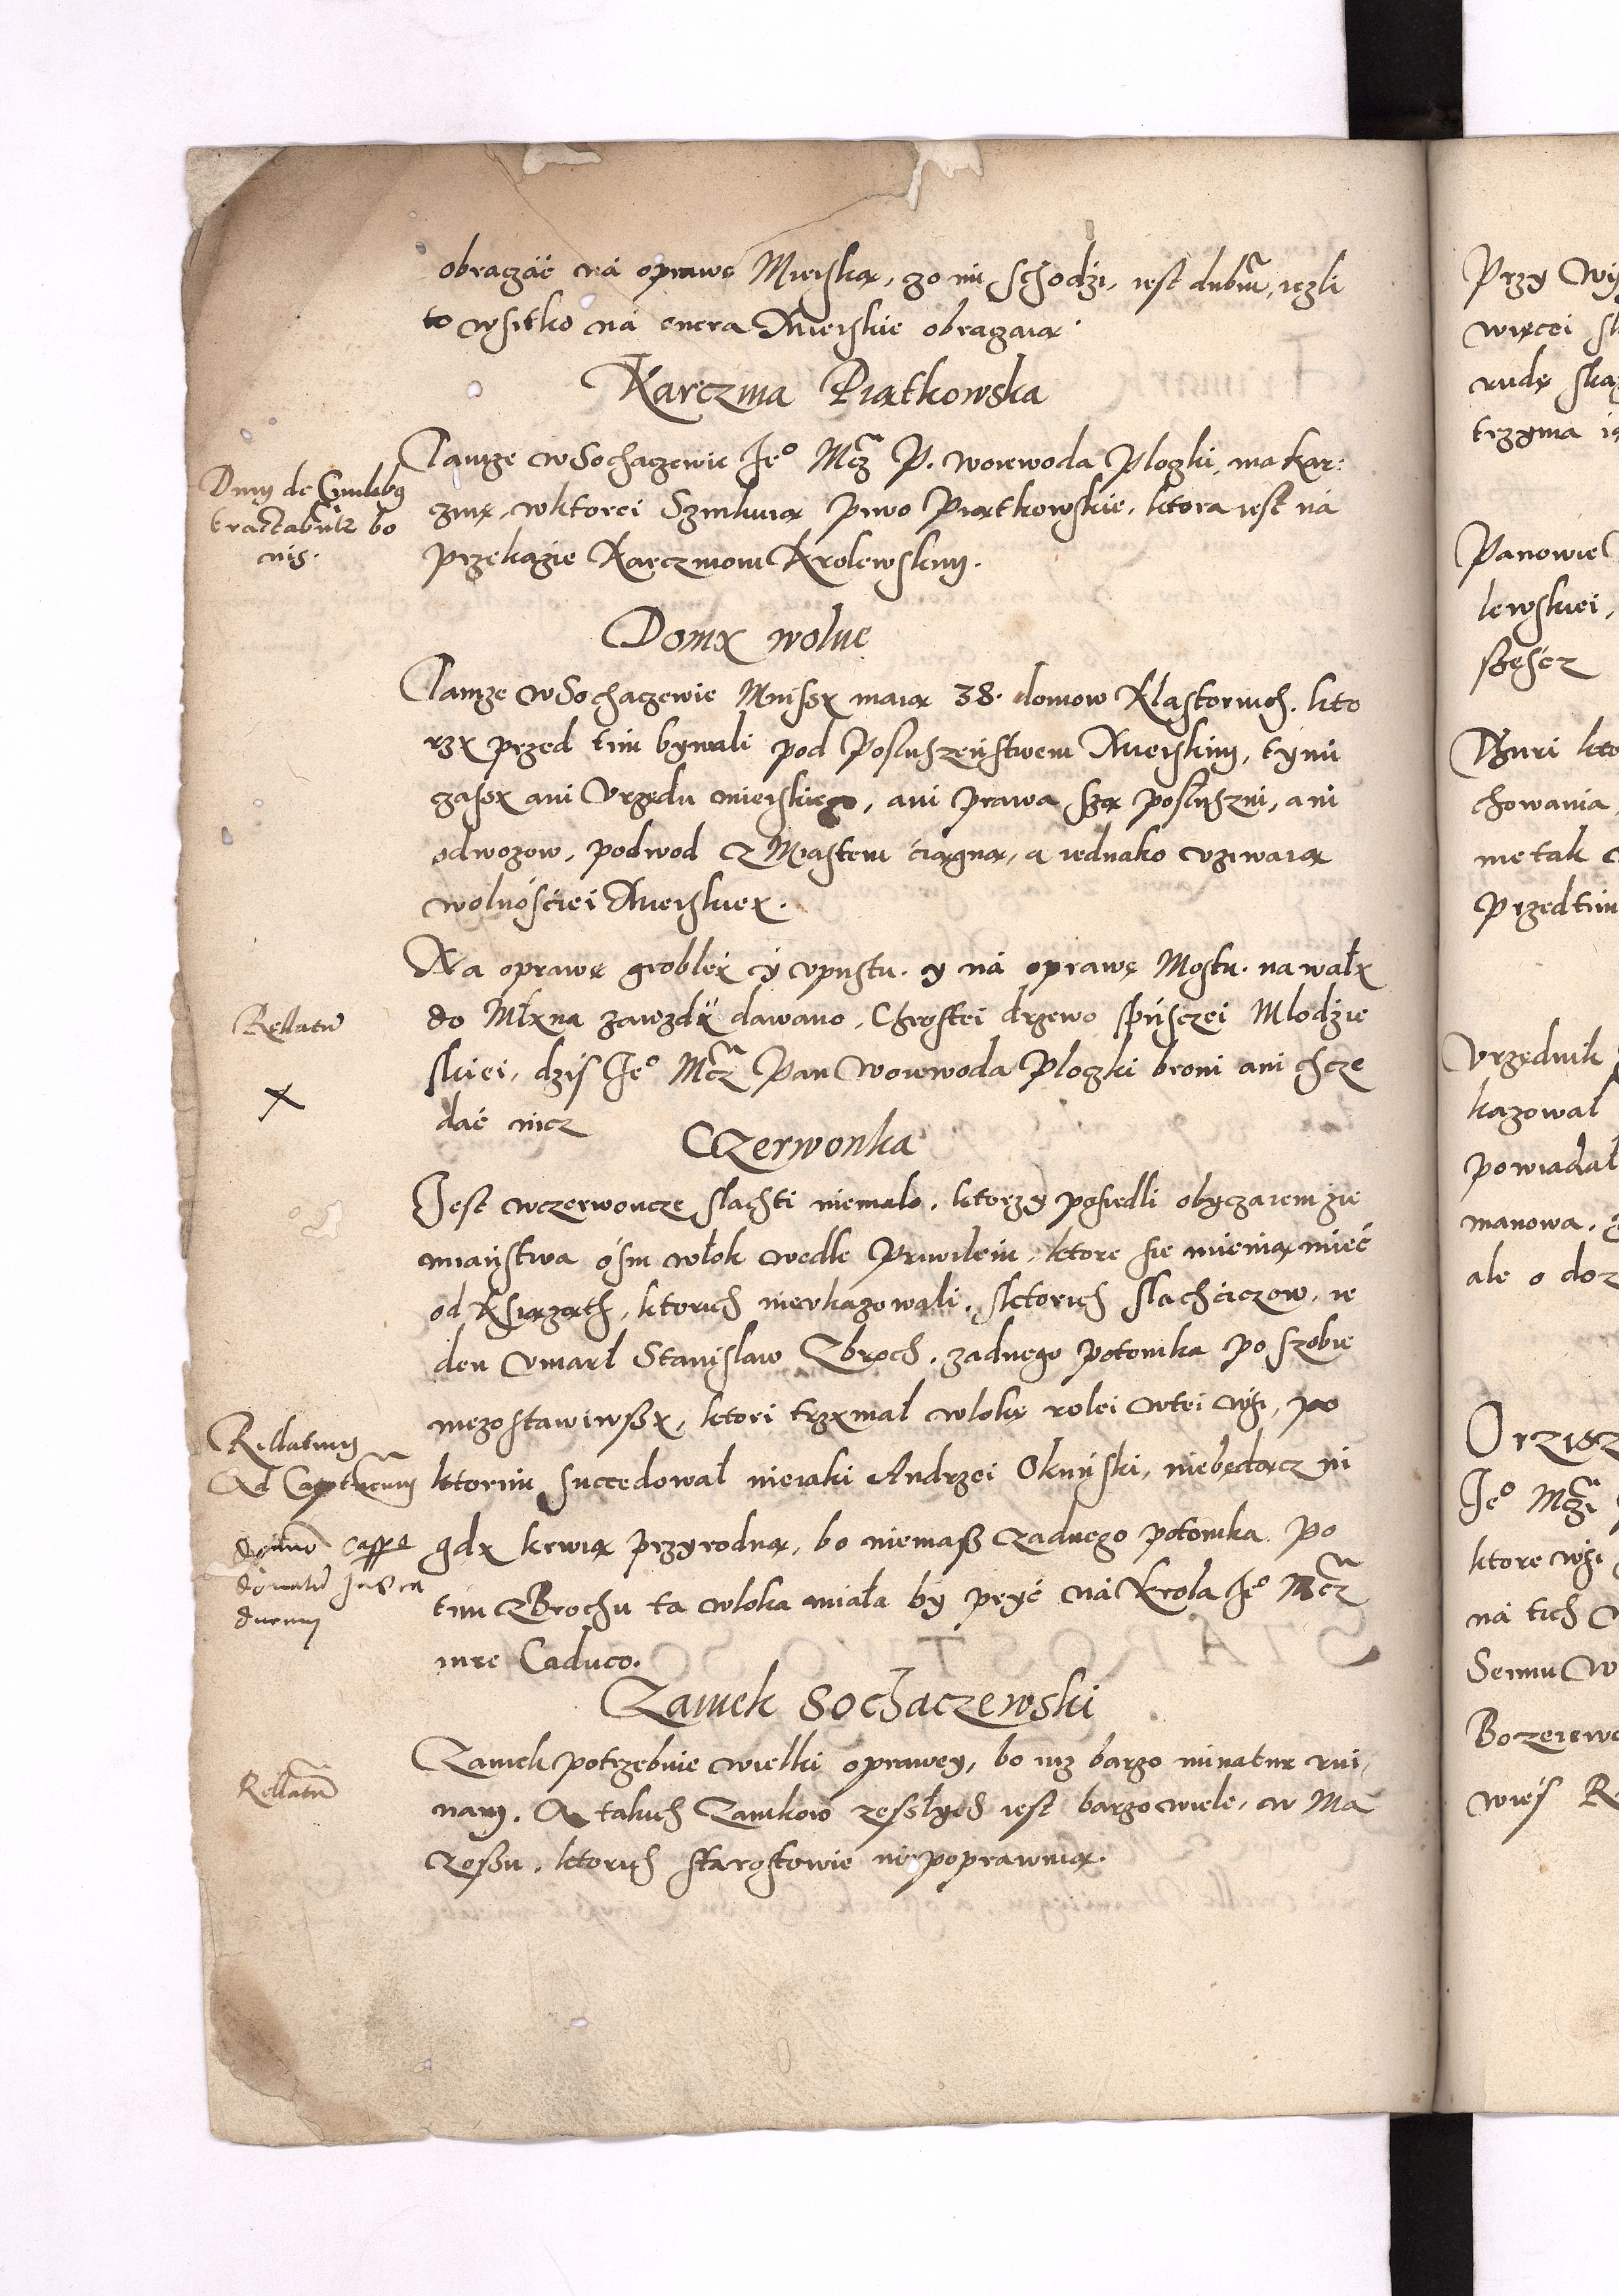 obraczać na oprawę Mieiską, czo nie schodzi, iest dubiū, iezli
to wsitko na onera Mieiskie obraczaią.
Karczma Piątkowska
Tamze w Sochaczewie Jeº Mczi P. woiewoda Ploczki, ma kar:
czmę, w ktorei Szinkuią piwo Piątkowskie, ktora iest na
przekazie Karczmom Krolewskim.
Dnij de Simlibus
tractabūtr bo
nis.
Domy wolne
Tamze w Sochaczewie Mniszy maią 38. domow Klastornich, kto
rzy przed tim bywali pod Posluszeństwem Mieiskim, tymi
czassy ani Vrzędu mieiskiego, ani prawa szą poslyszni, ani
odwozow, podwod z Miastem ciągną, a iednako vziwaią
wolnósciei Mieiskiey.
Na oprawę grobley y vpustu, y na oprawę Mostu, na wały
do Młyna zawzdy dawano, Chrostei drzewo spusczei Mlodzie
skiei, dzis Jeº Mcz Pan Woiewoda Ploczki broni ani chcze
dać nicz
Rellatū
Czerwonka
Jest w czerwoncze slachti niemalo, ktorzy posiedli obyczaiem zie
miaństwa ósm włok wedle Priwileiu, ktore sie mienią mieć
od Ksiąząth, ktorich nieukazowali, s ktorich slachciczow, ie
den vmarl Stanislaw Zbroch, zadnego potomka po szobie
niezostawiwssy, ktori trzymal wlokę rolei w tei wsi, po
ktorim succedowal nieiaki Andrzei Okuński, niebędącz ni
gdy krwią przyrodną, bo niemasz zadnego potomka. Po
tim Zbrochu ta wloka miała by prýć na Krola Jeº Mcz
iure Caduco.
Rellatum
Ad Captūrum
donatū Jus ca
ducum
Zamek Sochaczewski
Zamek potrzebuie wielki oprawey, bo iuz barzo minatur rui,
nam. A takich Zamkow zesslych iest barzo wiele, w Ma
zossu, ktorich starostowie nie poprawuią.
Rellatū
Przy
więcei
rudę
trzyma
Panowie
lewskiei,
szesćz
chowania
nie tak
Przedtim
Vrzędnik
kazowal
powiadał
manowa,
ale o
Jeº Mczi
ktore wsi
na tich
Seimu
wieś